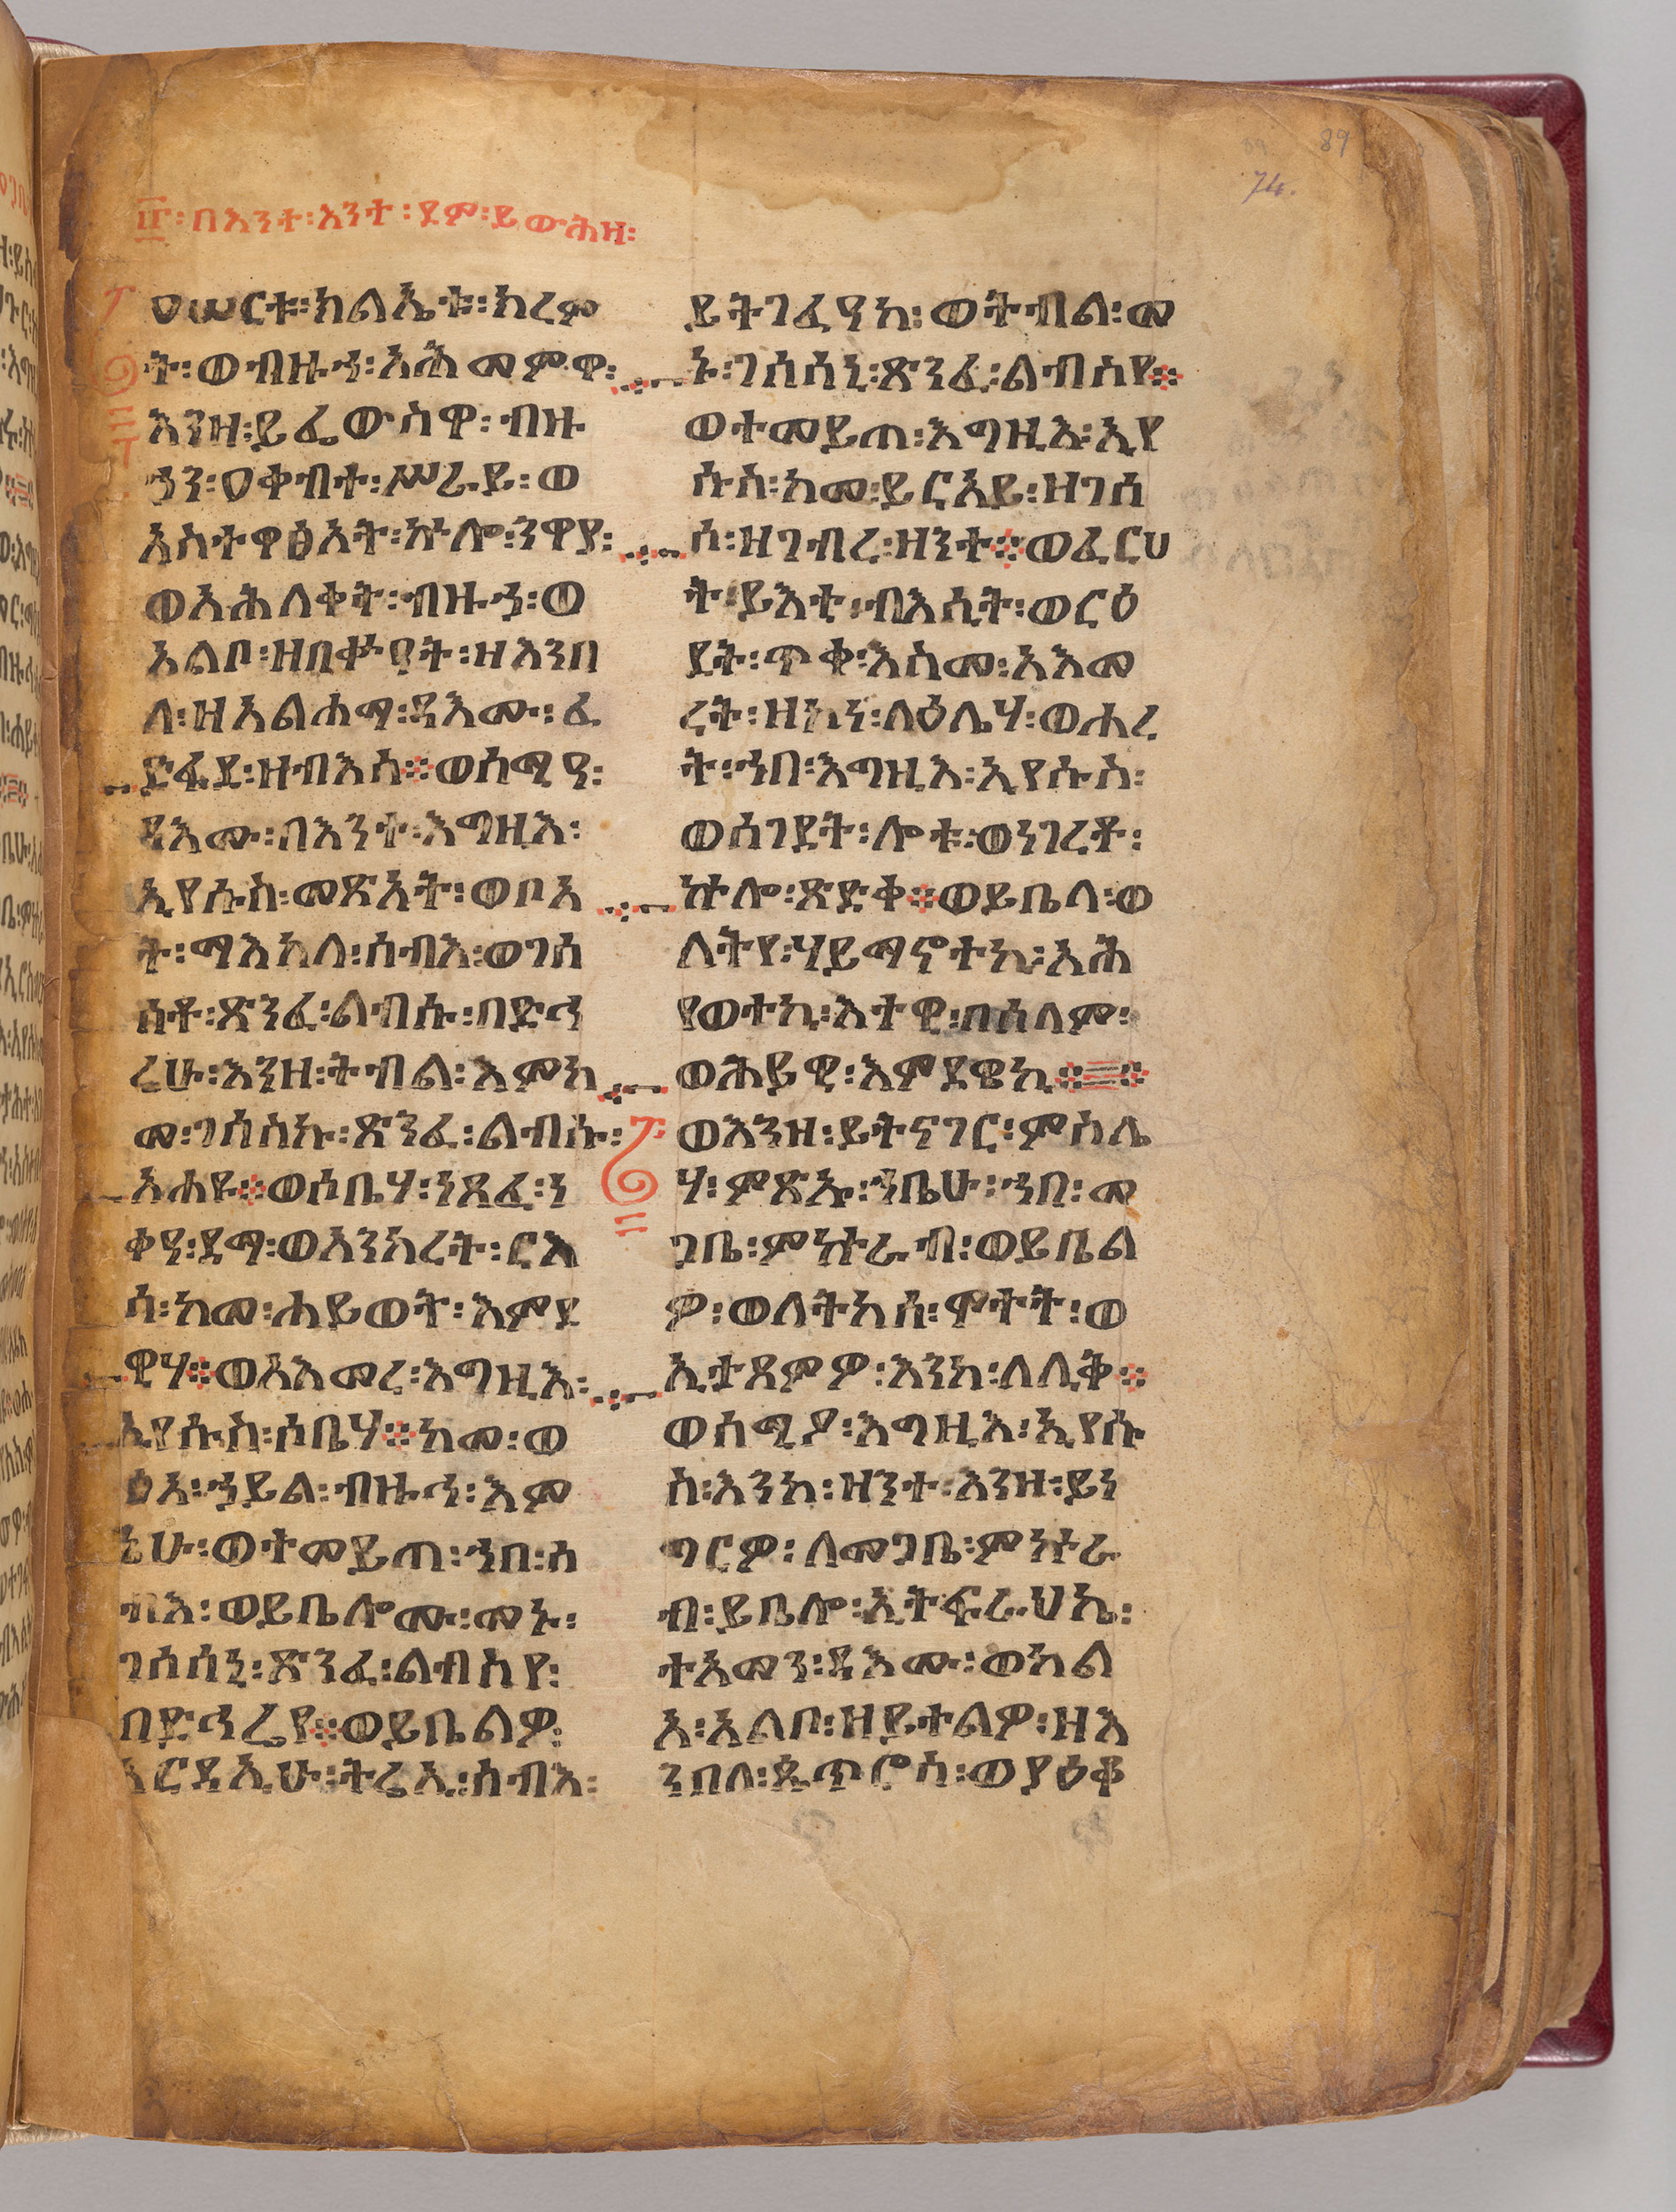 ፲፰፡በእንተ፡እንተ፡ደም፡ይውሕዛ፡
89
74.
፲
ዐሠርቱ፡ክልኤቱ፡ክረም
ት፡ወብዙኅ፡አሕመምዋ፡
እንዘ፡ይፌውስዋ፡ብዙ
ኃን፡ዐቀብተ፡ሥራይ፡ወ
አስተዋፅአት፡ኵሎ፡ንዋያ፡
ወአሕለቀት፡ብዙኃ፡ወ
አልቦ፡ዘበቍዐት፡ዘእንበ
ለ፡ዘአልሐማ፡ዳእሙ፡ፈ
ድፋደ፡ዘብእሰ፨ወሰሚዓ፡
ዳእሙ፡በእንተ፡እግዚእ፡
ኢየሱስ፡መጽአት፡ወቦአ
ት፡ማእከለ፡ሰብእ፡ወገሰ
ሰቶ፡ጽንፈ፡ልብሱ፡በድኅ
ሬሁ፡እንዘ፡ትብል፡እምከ
መ፡ገሰስኩ፡ጽንፈ፡ልብሱ፡
አሐዩ፨ወሶቤሃ፡ነጸፈ፡ነ
ቅዓ፡ደማ፡ወአንከረት፡ርእ
ሳ፡ከመ፡ሐይወት፡እምደ
ዌሃ፨ወአእመረ፡እግዚእ፡
ኢየሱስ፡ሶቤሃ፨ከመ፡ወ
ፅአ፡ኃይል፡ብዙኅ፡እም
ኔሁ፡ወተመይጠ፡ኀበ፡ሰ
ብእ፡ወይቤሎሙ፡መኑ፡
ገሰሰኒ፡ጽንፈ፡ልብስየ፡
በድኅሬየ፨ወይቤልዎ፡
አርዳኢሁ፡ትሬኢ፡ሰብእ፡
ይትገፈዓከ፡ወትብል፡መ
ኑ፡ገሰሰኒ፡ጽንፈ፡ልብስየ፨
ወተመይጠ፡እግዚእ፡ኢየ
ሱስ፡ከመ፡ይርአይ፡ዘገሰ
ሶ፡ዘገብረ፡ዘንተ፨ወፈርሀ
ት፡ይእቲ፡ብእሲት፡ወርዕ
ደት፡ጥቀ፡እስመ፡አእመ
ረት፡ዘኮነ፡ላዕሌሃ፡ወሐረ
ት፡ኀበ፡እግዚእ፡ኢየሱስ፡
ወሰገደት፡ሎቱ፡ወነገረቶ፡
ኵሎ፡ጽድቀ፨ወይቤላ፡ወ
ለትየ፡ሃይማኖተኪ፡አሕ
የወተኪ፡እተዊ፡በሰላም፡
ወሕይዊ፡እምደዌኪ፨
ወእንዘ፡ይትናገር፡ምስሌ
ሃ፡ምጽኡ፡ኀቤሁ፡ኀበ፡መ
ጋቤ፡ምኵራብ፡ወይቤል
ዎ፡ወለትከሰ፡ሞተት፡ወ
ኢታጸምዎ፡እንከ፡ለሊቅ፨
ወሰሚዖ፡እግዚእ፡ኢየሱ
ስ፡እንከ፡ዘንተ፡እንዘ፡ይነ
ግርዎ፡ለመጋቤ፡ምኵራ
ብ፡ይቤሎ፡ኢትፍራህኬ፡
ተአመን፡ዳእሙ፡ወከል
አ፡አልቦ፡ዘይተልዎ፡ዘእ
ንበለ፡ጴጥሮስ፡ወያዕቆ